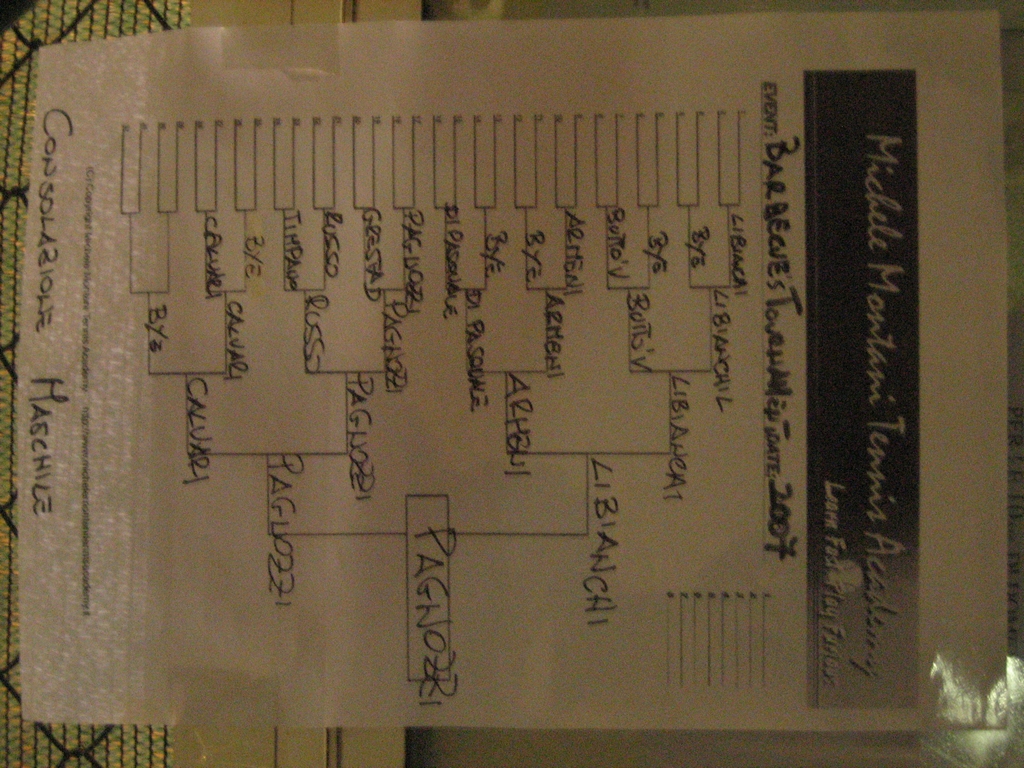 Michele Montani Tennis Academy
Learn Fast Play Future
EVENT: BARBECUE'S TOURNAMENT DATE: 2007
LIBIANCHI
BYE
BYE
BUTTO'V
ARMENI
BYE
BYE
DI PASQUALE
PAGNOZZI
GRESTAD
RUSSO
TIMPANO
BYE
CALVARI
LIBIANCHI
BUTTO'V
ARMENI
DI PASQUALE
PAGNOZZI
RUSSO
CALVARI
BYE
LIBIANCHI
ARMENI
PAGNOZZI
CALVARI
LIBIANCHI
PAGNOZZI
PAGNOZZI
CONSOLAZIONE MASCHILE